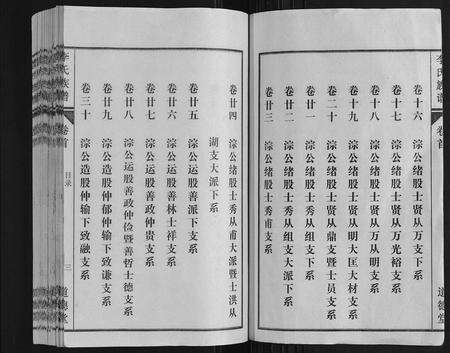 李氏族譜
卷首
道德堂
卷十六 淙公绪股士賢从万支下系
卷十七 淙公绪股士賢从万光裕支系
卷十八 淙公绪股士賢从万从明支系
卷十九 淙公绪股士賢从明大匡大材支系
卷二十 淙公绪股士賢从鼎支暨士員支系
卷廿一 淙公绪股士秀从组支下系
卷廿二 淙公绪股士秀从组支大派下系
卷廿三 淙公绪股士秀甫支系
卷廿四 淙公绪股士秀从甫大派暨士洪从
湖支大派下系
卷廿五 淙公运股善派下支系
卷廿六 淙公运股善林士祥支系
卷廿七 淙公运股善政仲贵支系
卷廿八 淙公运股善政仲俭暨善哲士德支系
卷廿九 淙公造股仲郁仲输下致谦支系
卷三十 淙公造股仲输下致融支系
李氏族譜
卷首
目录
三
道德堂